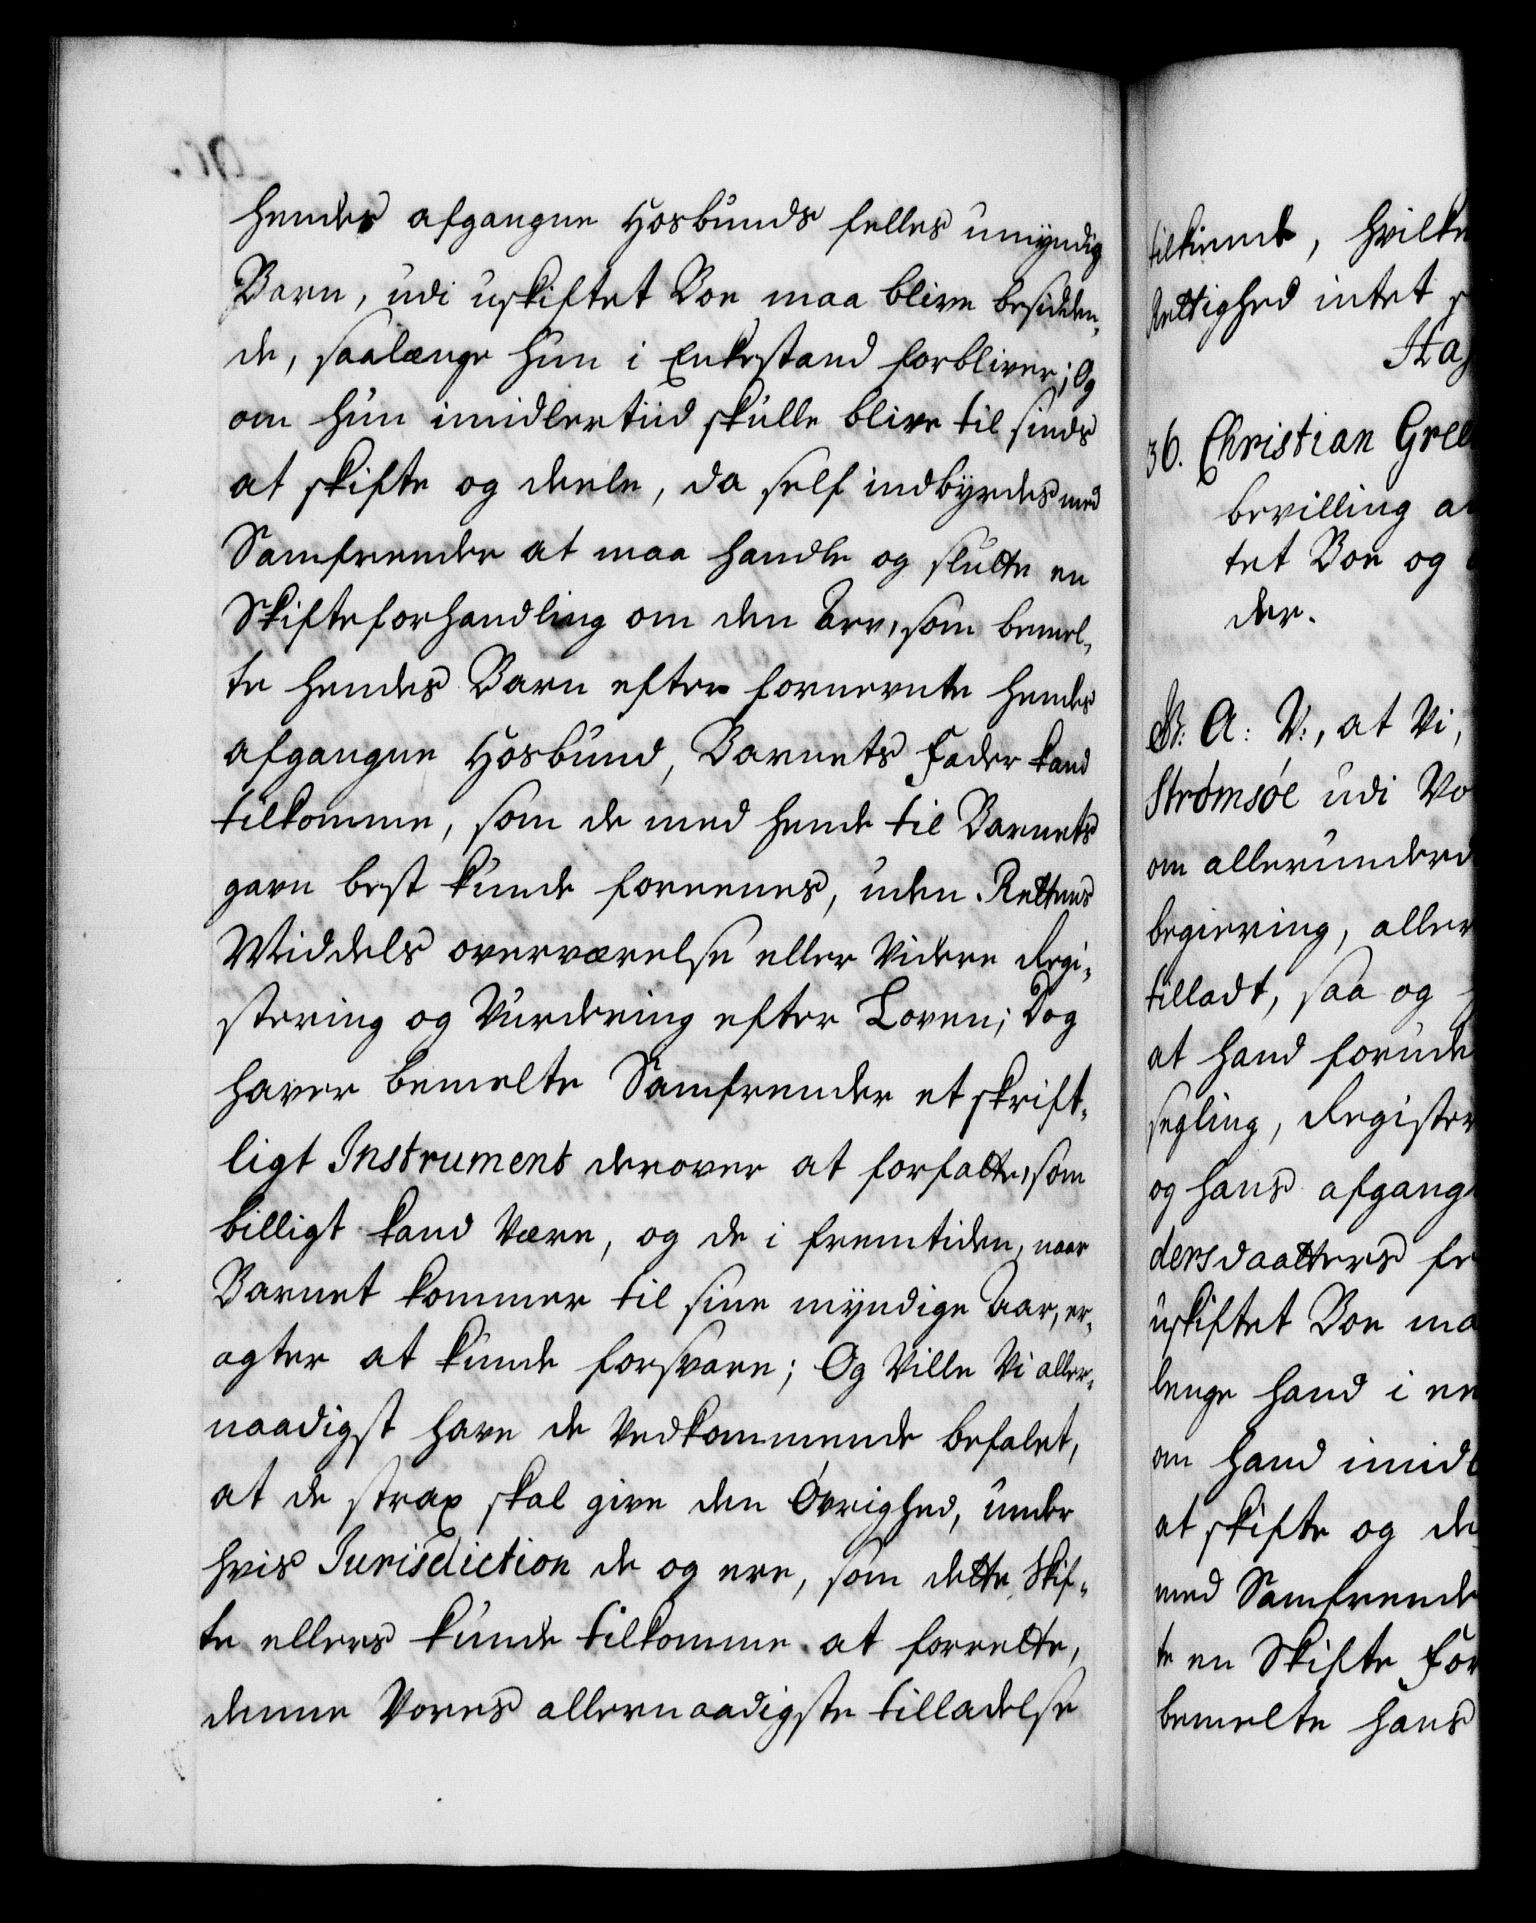 hendes afgangne Hosbunds felles umyndig
Barn, udi uskiftet Boe maa blive besidden,
de, saalænge hun i Enkestand forbliver; Og
om hun imidlertiid skulle blive til sinds
at skifte og deele, da self indbyrdes med
Samfrender at maa handle og slutte en
Skifteforhandling om den Arv, som bemel,
te hendes Barn efter fornevnte hendes
afgangne Hosbund, Barnets Fader kand
tilkomme, som de med hende til Barnets
gavn best kunde foreenes, uden Rettens
Middels overværelse eller Videre Regi,
stering og Vurdering efter Loven; Dog
haver bemelte Samfrender et skrift,
ligt Instrument derover at forfatte, som
billigt kand Være, og de i fremtiden, naar
Barnet kommer til sine myndige Aar, er,
agter at kunde forsvare; Og Ville Vi aller,
naadigst have de Vedkommende befalet,
at de strax skal give den Øvrighed, under
hvis Jurisdiction de og ere, som dette Skif,
te ellers kunde tilkomme at forrette,
denne Vores allernaadigste tilladelse
tilkiende, hvilke
Rettighed intet
36. Christian
bevilling
tet Boe og
der.
B: A: V:, at Vi,
Strømsøe udi Vo
om allerunderd
begiering, aller
tilladt, saa og
at hand foruden
segling, Register
og hans afgang
dersdaatters fe
uskiftet Boe ma
lenge hand i en
om hand imidl
at skifte og de
med Samfrende
te en Skifte For
bemelte hans